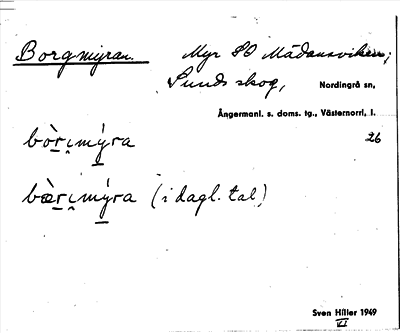 Borgmyran. Myr SO Mädansviken;
Sunds skog, Nordingrå sn,
Ångermanl. s. doms. tg., Västernorrl. l.
26
bòr̤i̯mý̠ra
bær̤i̯mý̠ra (i dagl. tal)
Sven Hiller 1949
VI